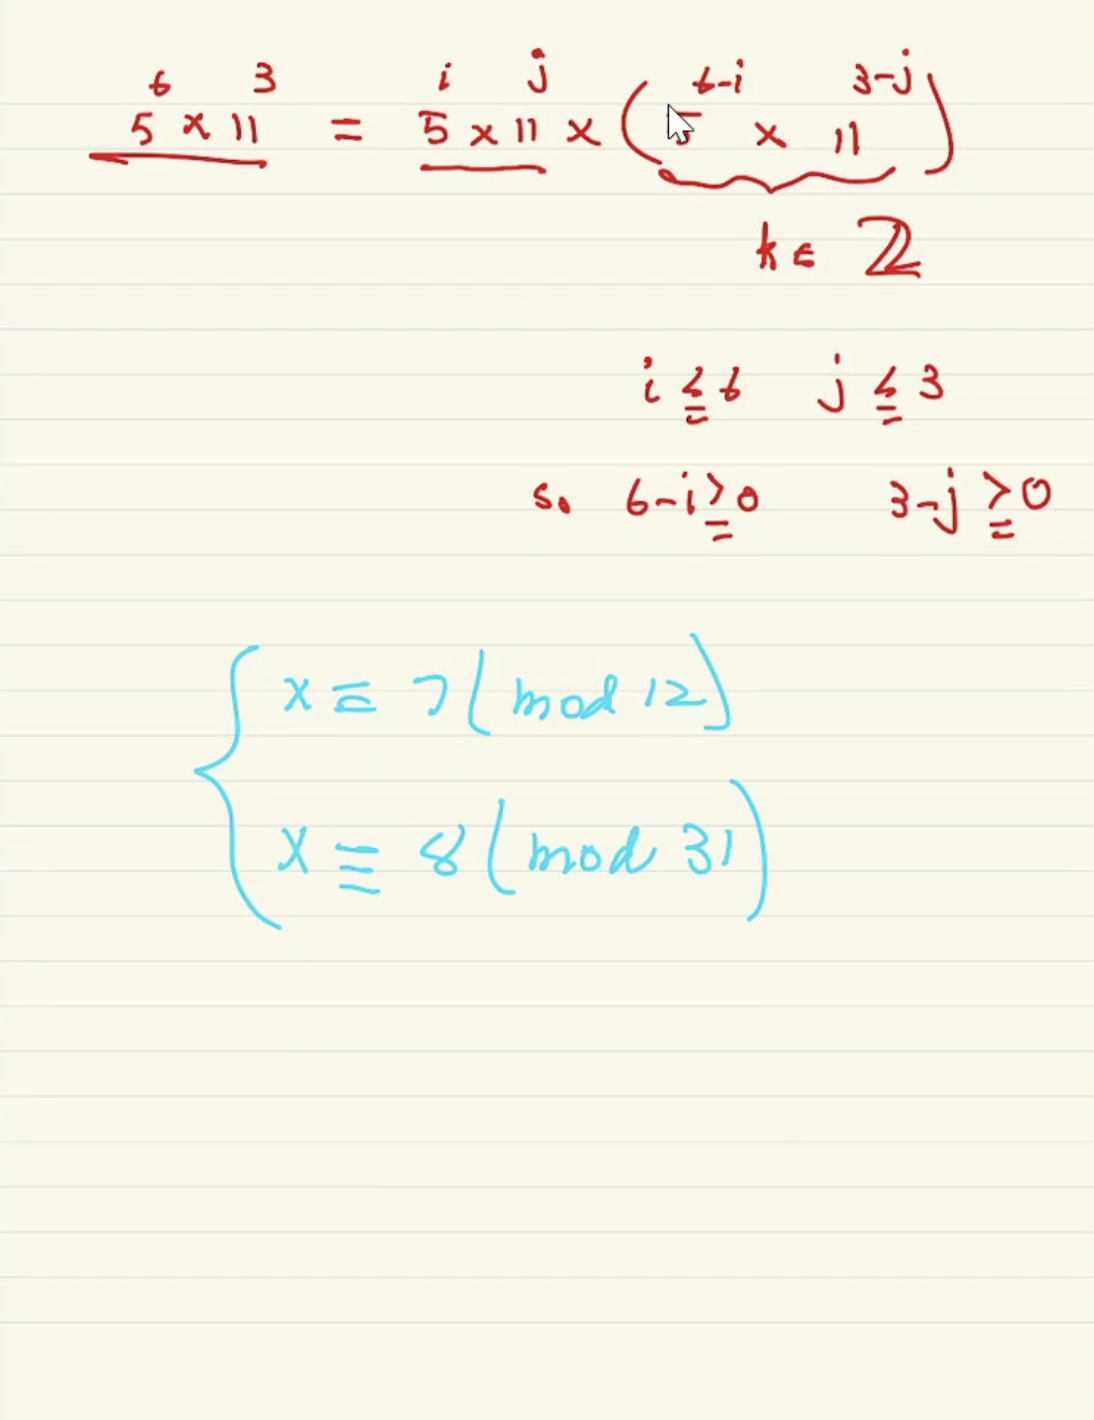 5⁶ × 11³ = 5ⁱ × 11ʲ × (5⁶⁻ⁱ × 11³⁻ʲ)
k ∈ ℤ
i ≤ 6 j ≤ 3
so 6-i ≥ 0 3-j ≥ 0
x ≡ 7 (mod 12)
x ≡ 8 (mod 31)